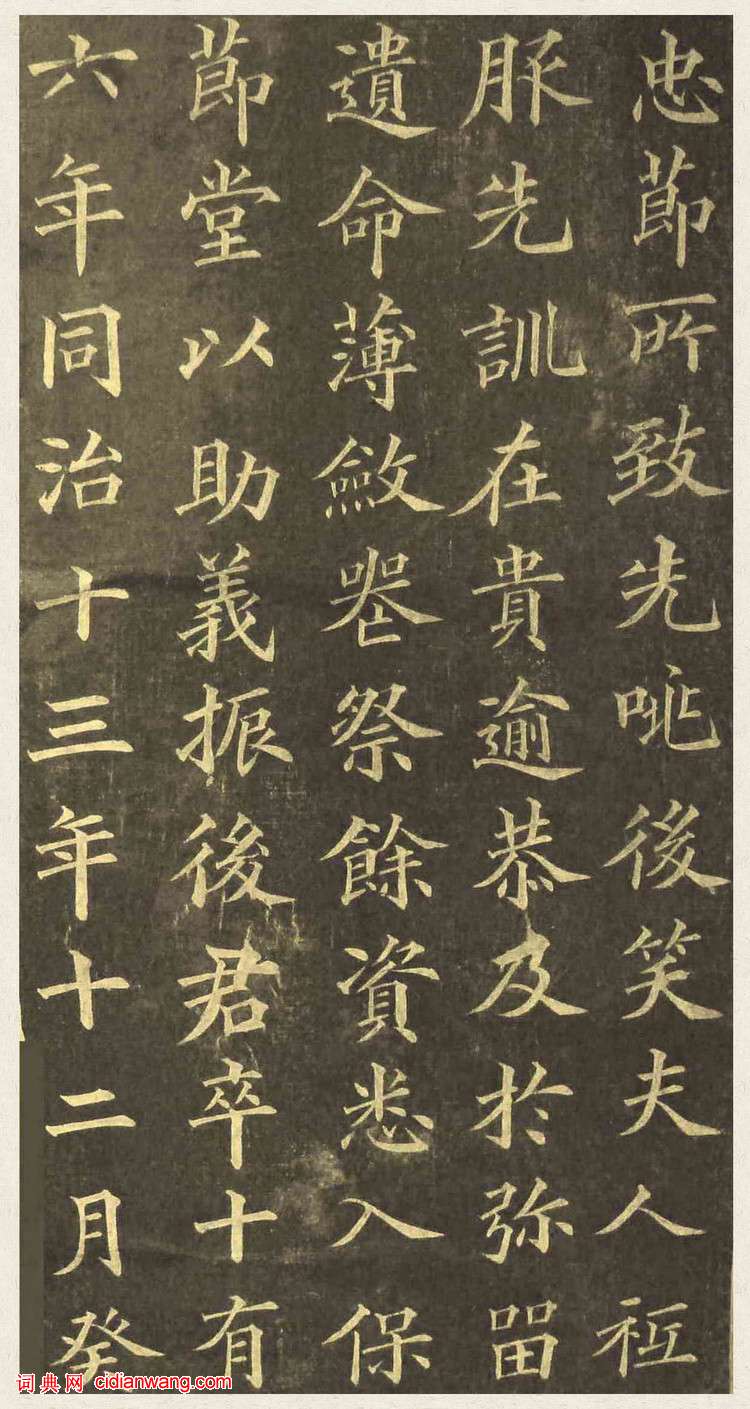 忠莭所致先咷後笑夫人祗
服先訓在貴逾恭及於弥留
遺命薄斂喪祭餘資悉入保
莭堂以助義振後君卒十有
六年同治十三年十二月癸
词典网 cidianwang.com